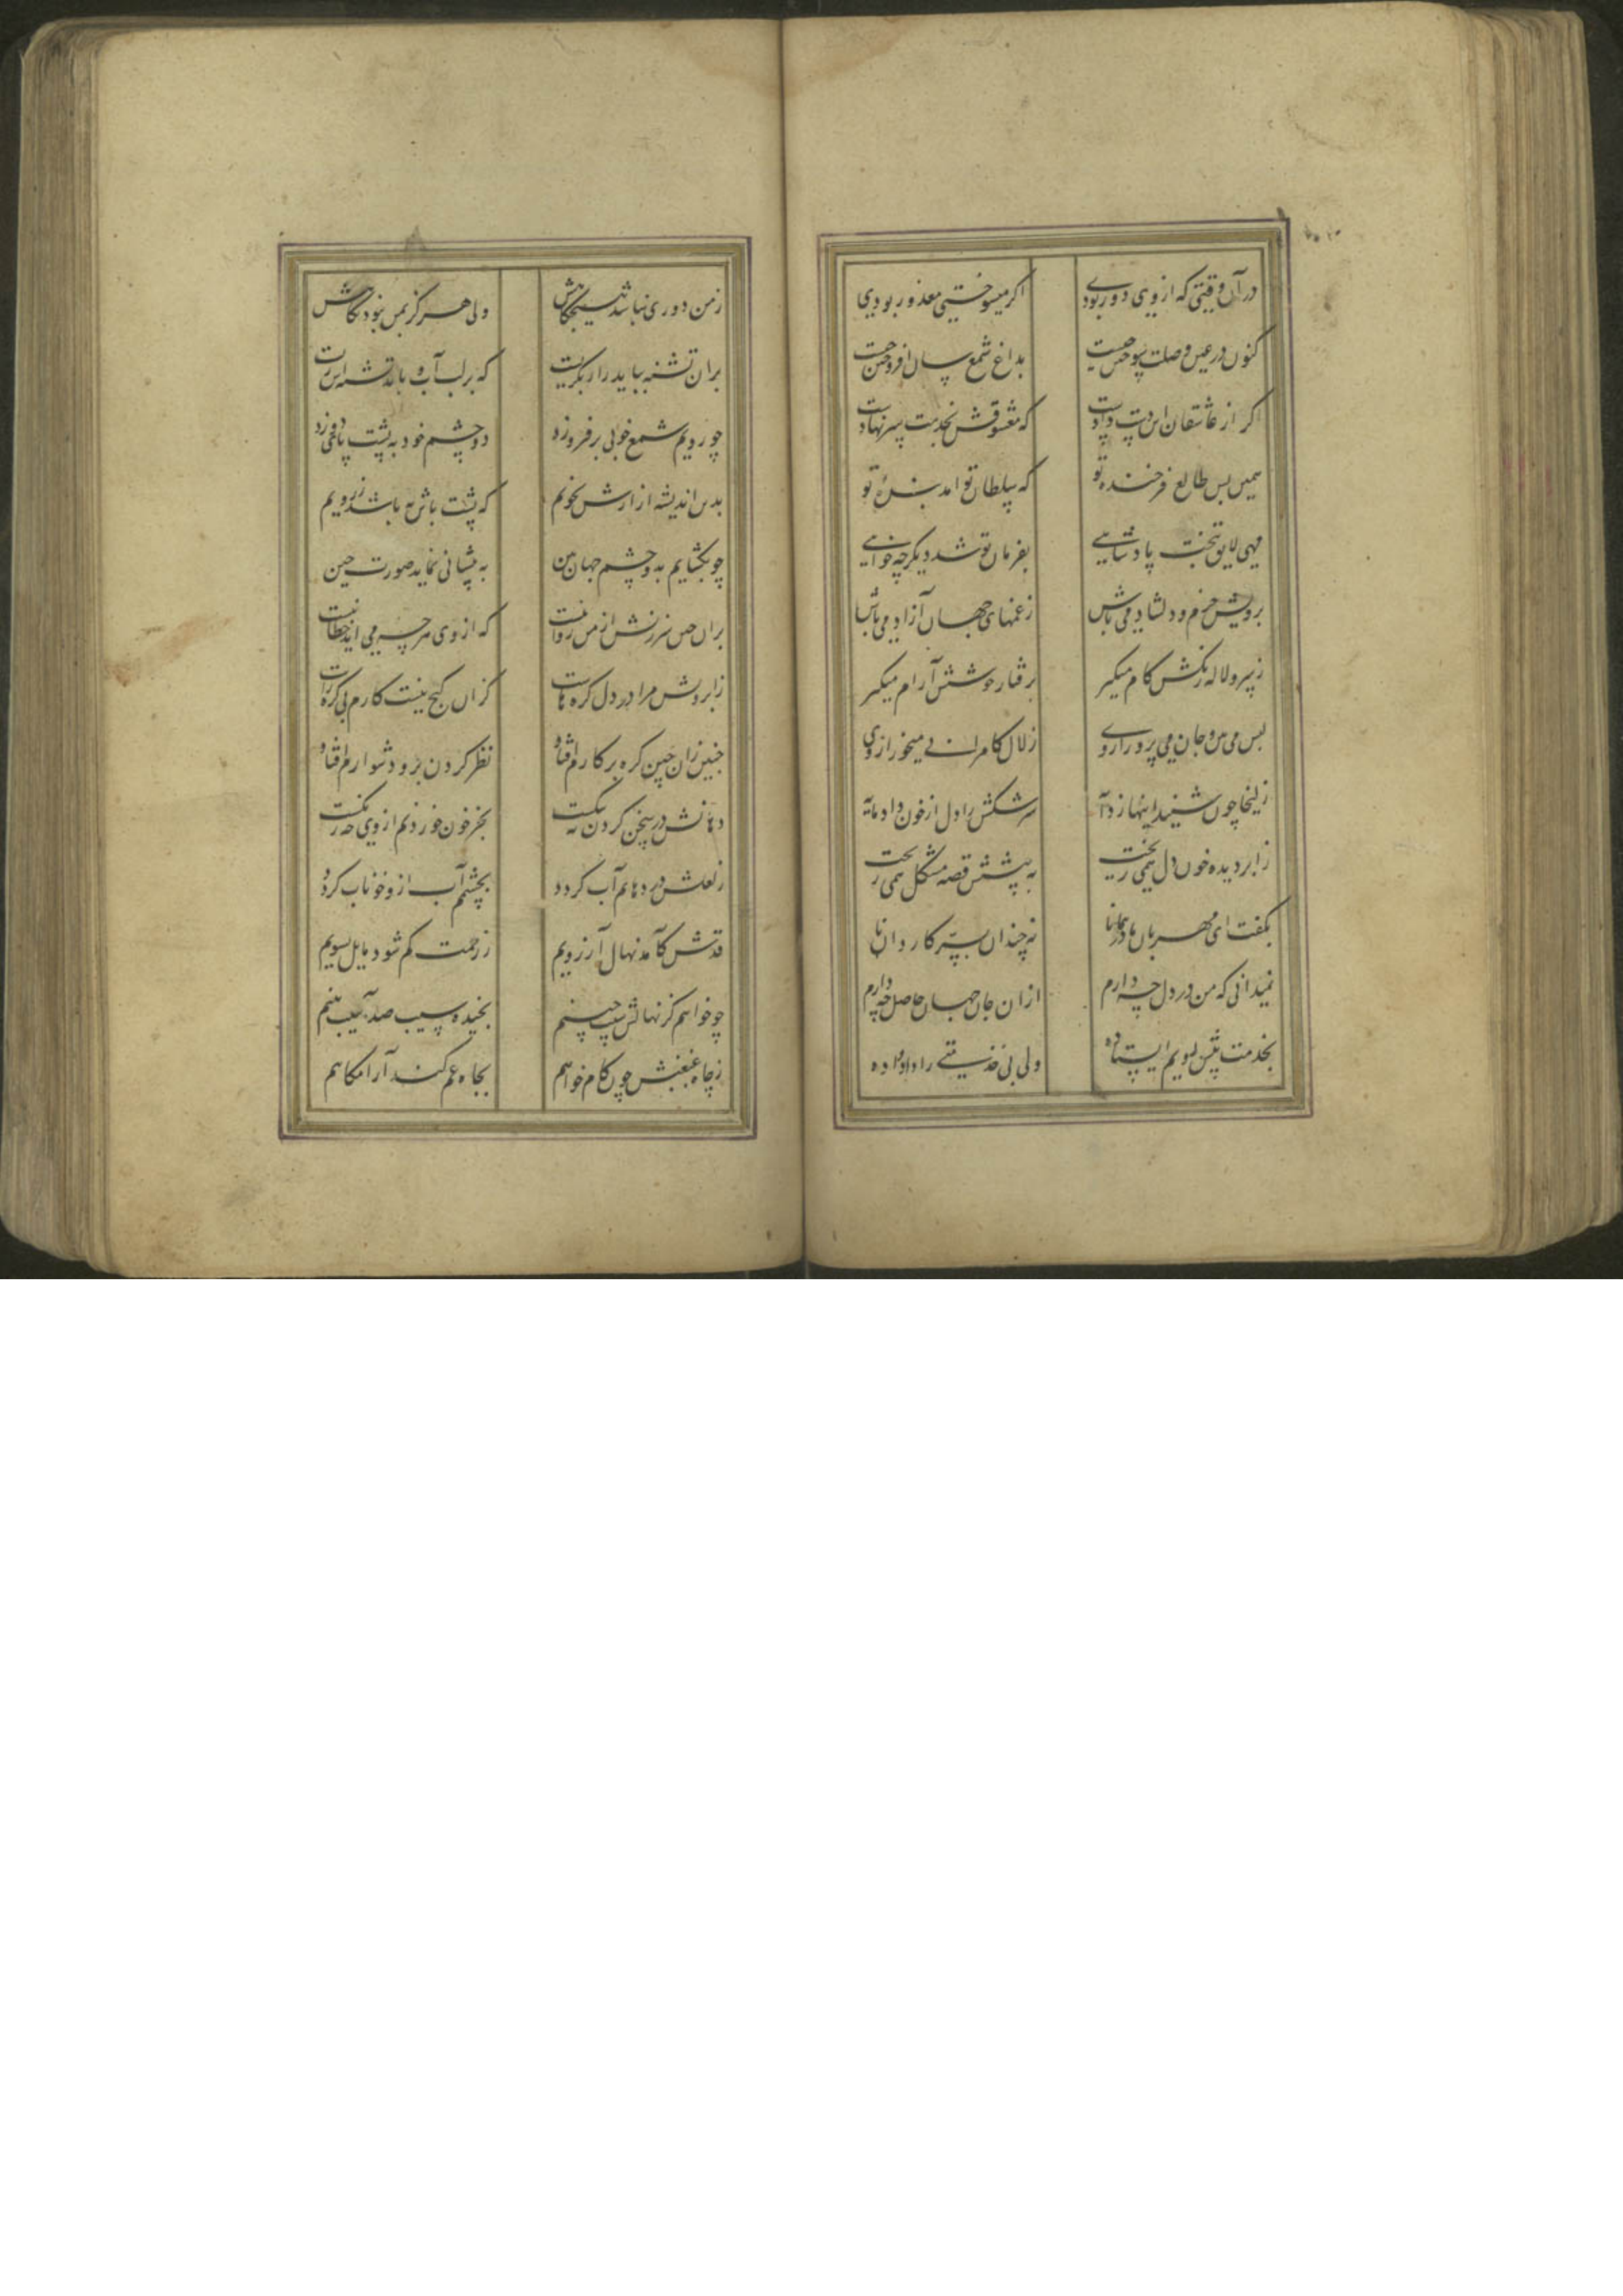 در آن وقتی که از وی دور بودی اگر میسوختی معذور بودی
کنون در عین وصلت سوختن چیست بداغ شمع سان افروختن چیست
کر از عاشقان این دست دادست که معشوقش بخدمت سر نهادست
همین بس طالع فرخنده تو که سلطان تو آمد بنده تو
مهی لایق بتخت پادشاهی بفرمان تو شد دیگر چه خواهی
برویش خرم و دلشاد می باش زغمهای جهان آزاد می باش
ز سرو لاله رنگش کام میگیر برفتار خوشش آرام میگیر
لبش می بین و جان می پرور از وی زلال کامرانی میخور از وی
زلیخا چون شنید اینها ز دایه سرشکش را دل از خون داد مایه
ز ابر دیده خون دل همی ریخت به پیشش قصه مشکل همی ریخت
بگفت ای مهربان مادر همانا نه چندان بسر کار دانا
نمیدانی که من در دل چه دارم ازان جان جهان حاصل چه دارم
بخدمت پیش رویم ایستاده ولی بی خدمتی را داد داده
زمن دوری نباشد هیچگاهش ولی هرگز بمن نبود نگاهش
بران تشنه بباید زار بگریست که بر لب آب و باید تشنه اش زیست
چو رویم شمع خوبی بر فروزد دو چشم خود به پشت پا دوزد
بدین اندیشه آزارش نجویم که پشت پاش به باشد ز رویم
چو بکشایم بدو چشم جهان بین به پیشانی نماید صورت چین
بران چین سرزنش از من روا نیست که از وی هر چه می آید خطا نیست
ز ابرویش مرا در دل گره هاست کزان کج نیست کارم بی گره راست
چنین زان چین گره بر کارم افتاد نظر کردن برو دشوارم افتاد
دهانش در سخن کردن چه تنگست بجز خون خوردنم از وی چه رنگست
ز لعلش در دهانم آب گردد بچشمم آب ازو خوناب گردد
قدش کآمد نهال آرزویم ز رحمت کم شود مایل بسویم
چو خواهم کز نهالش سیب چینم نچیده سیب صد آسیب بینم
ز چاه غبغبش چون کام خواهم بچاه غم کند آرامگاهم